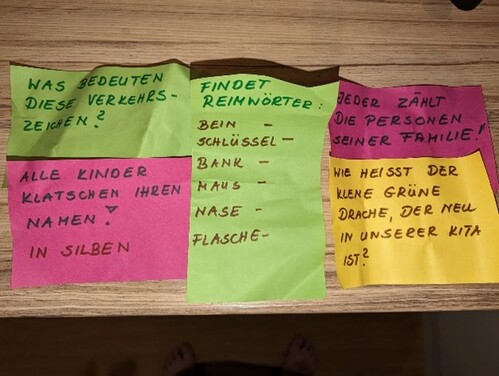 WAS BEDEUTEN
DIESE VERKEHRS-
ZEICHEN?
ALLE KINDER
KLATSCHEN IHREN
NAMEN!
IN SILBEN
FINDET
REIMWÖRTER:
BEIN -
SCHLÜSSEL -
BANK -
MAUS -
NASE -
FLASCHE -
JEDER ZÄHLT
DIE PERSONEN
SEINER FAMILIE!
WIE HEISST DER
KLENE GRÜNE
DRACHE, DER NEU
IN UNSERER KITA
IST?